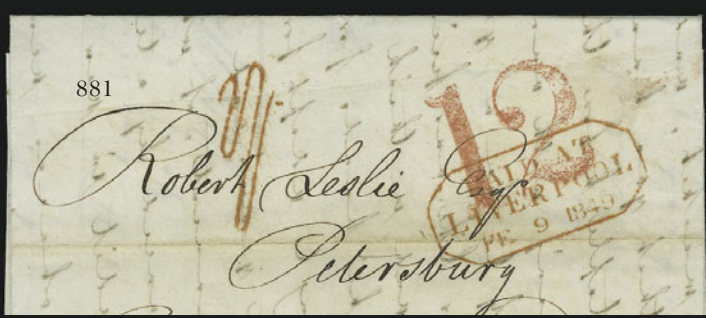 881
1/-
12
PAID AT
LIVERPOOL
FE 9 1849
Robert Leslie Esqr
Petersburg